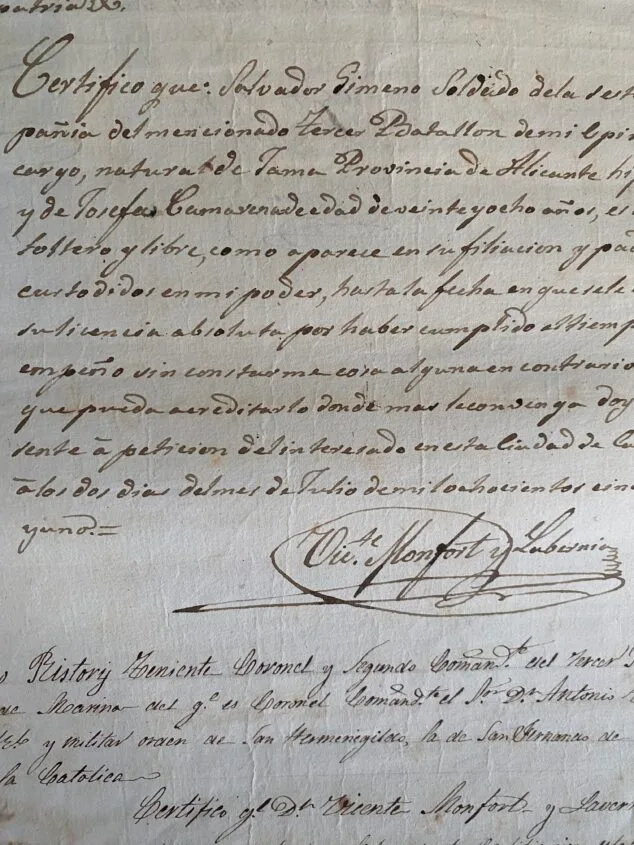 patria &.
Certifico que: Salvador Gimeno Soldado de la sest
pañia del mencionado Tercer Batallon de mi
cargo, natural de Tama Provincia de Alicante hi
y de Josefa Camarena de edad de veinte y ocho años, es
soltero y libre, como aparece en su filiacion y pa
custodidos en mi poder, hasta la fecha en que se le
su licencia absoluta por haber cumplido el tiemp
empeño sin constarme cosa alguna en contrario
que pueda acreditarlo donde mas le convenga doy
sente á peticion del interesado en esta Ciudad de Ca
á los dos dias del mes de Julio de mil ochocientos cin
y uno.=
Vic.te Monfort y Labernia
Ristory Teniente Coronel y Segundo Comand.te del Tercer
de Marina del q.e es Coronel Comand.te el Sor. Dn Antonio
y militar orden de San Hermenegildo, la de San Fernando de
la Catolica
Certifico q.e Dn Vicente Monfort y Lavern